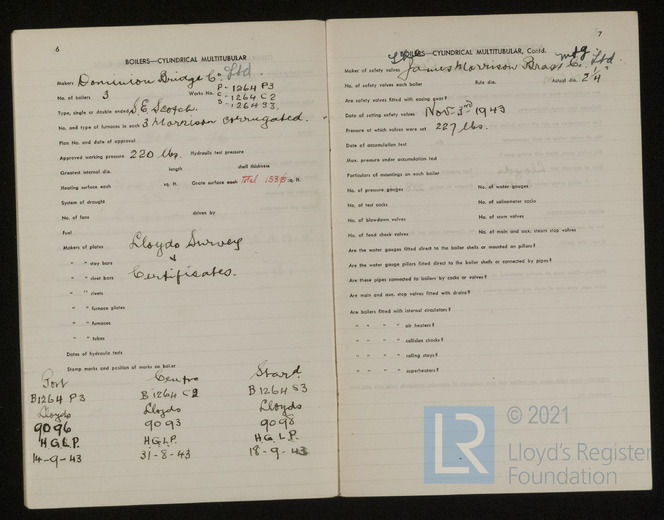 6
BOILERS—CYLINDRICAL MULTITUBULAR
Makers Dominion Bridge Co Ltd.
No. of boilers 3 Works No. P - 1264 P3
C - 1264 C2
S - 1264 S3
Type, single or double ended S.E. Scotch.
No. and type of furnaces in each 3 Morrison corrugated.
Plan No. and date of approval
Approved working pressure 220 lbs. Hydraulic test pressure
Greatest internal dia. length shell thickness
Heating surface each sq. ft. Grate surface each Total sq. ft.
System of draught
No. of fans driven by
Fuel
Makers of plates Lloyds Survey
" " stay bars &
" " rivet bars Certificates.
" " rivets
" " furnace plates
" " furnaces
" " tubes
Dates of hydraulic tests
Stamp marks and position of marks on boiler
Port Centre Starb'd
B1264 P3 B 1264 C2 B 1264 S3
Lloyds Lloyds Lloyds
9096 9093 9098
H.G.L.P. H.G.L.P. H.G.L.P.
14-9-43 31-8-43 18-9-43
7
BOILERS—CYLINDRICAL MULTITUBULAR, Contd.
Maker of safety valves The James Morrison Brass Mfg Co. Ltd.
No. of safety valves each boiler Rule dia. Actual dia. 2 1/4"
Are safety valves fitted with easing gear?
Date of setting safety valves Nov. 3rd 1943
Pressure at which valves were set 227 lbs.
Date of accumulation test
Max. pressure under accumulation test
Particulars of mountings on each boiler
No. of pressure gauges No. of water gauges
No. of test cocks No. of salinometer cocks
No. of blowdown valves No. of scum valves
No. of feed check valves No. of main and aux. steam stop valves
Are the water gauges fitted direct to the boiler shells or mounted on pillars?
Are the water gauge pillars fitted direct to the boiler shells or connected by pipes?
Are these pipes connected to boilers by cocks or valves?
Are main and aux. stop valves fitted with drains?
Are boilers fitted with internal circulators?
" " " " air heaters?
" " " " collision chocks?
" " " " rolling stays?
" " " " superheaters?
LR
© 2021
Lloyd's Register
Foundation